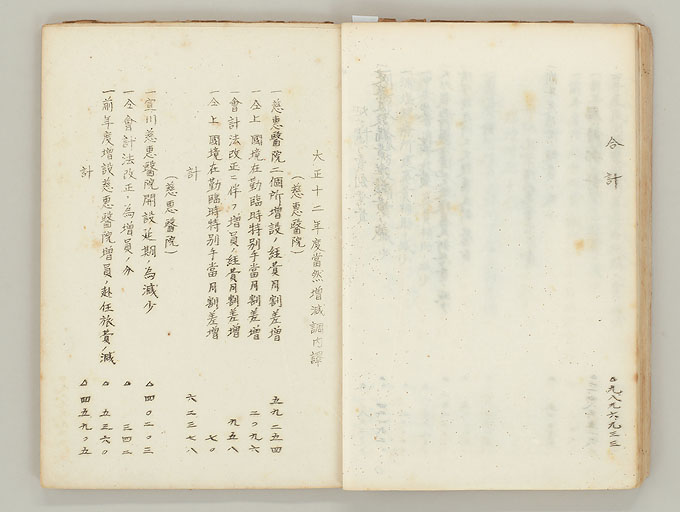 合計
△九八九六九三三
大正十二年度當然增減調內譯
(慈惠醫院)
一慈惠醫院二個所增設ノ經費月割差增 五九二五四
一仝上國境在勤臨時特別手當月割差增 二〇九六
一會計法改正ニ伴フ增員ノ經費月割差增 九五八
一仝上國境在勤臨時特別手當月割差增 七〇
計 六二三七八
(慈惠醫院)
一宣川慈惠醫院開設延期ノ為減少 △四〇二〇三
一仝會計法改正ノ為增員ノ分 △三四二
一前年度增設慈惠醫院增員ノ赴任旅費ノ減 △五三六〇
計 △四五九〇五